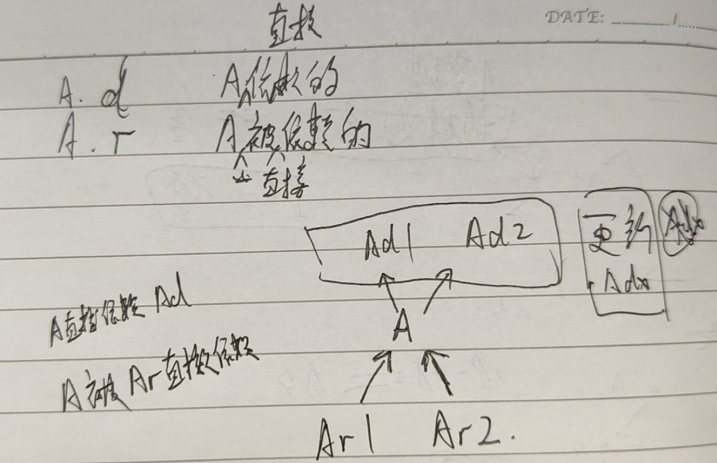 DATE:
直接
A.d A依赖的
A.r A被依赖的
直接
Ad1 Ad2
更新
Adx
A直接依赖 Ad
A
A被Ar直接依赖
Ar1 Ar2.